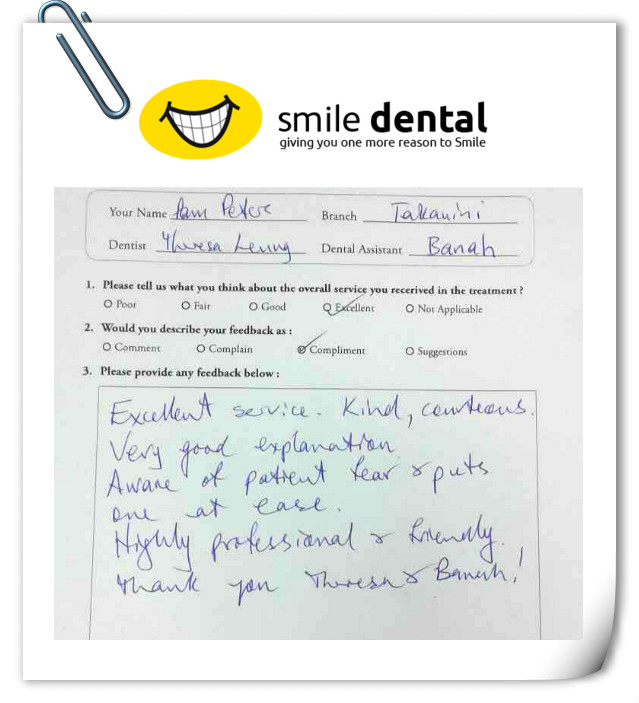 smile dental
giving you one more reason to Smile
Your Name Pam Peters Branch Takanini
Dentist Theresa Leung Dental Assistant Banah
1. Please tell us what you think about the overall service you recerived in the treatment ?
Poor Fair Good Excellent Not Applicable
2. Would you describe your feedback as :
Comment Complain Compliment Suggestions
3. Please provide any feedback below :
Excellent service. Kind, courteous.
Very good explanation
Aware of patient fear & puts
one at ease.
Highly professional & friendly.
Thank you Theresa & Banah!